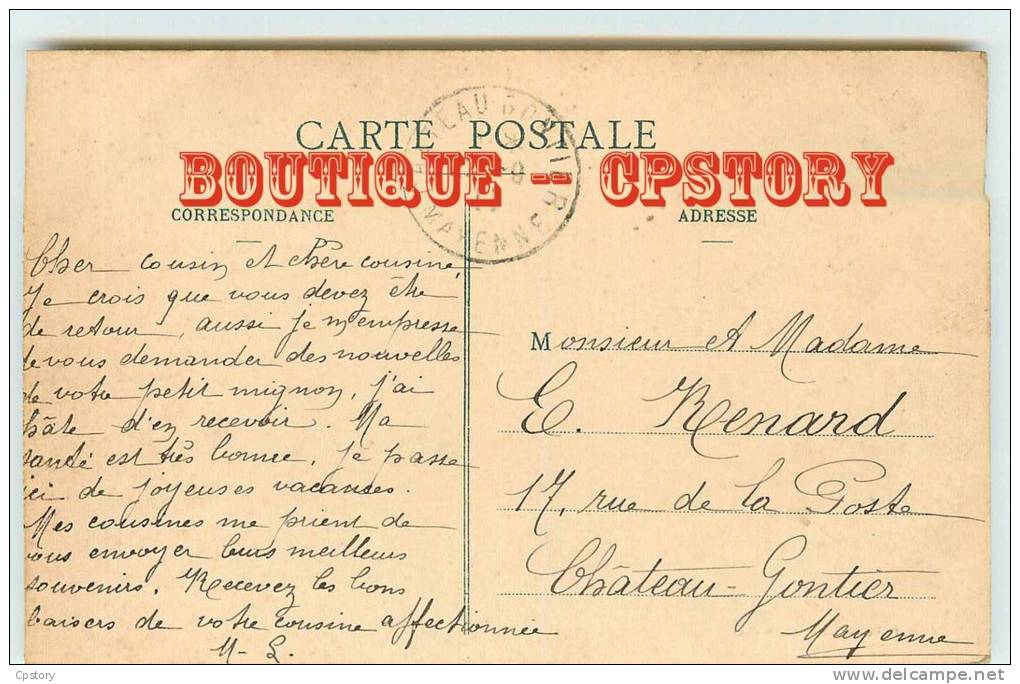 CARTE POSTALE
BOUTIQUE -- CPSTORY
CORRESPONDANCE
ADRESSE
MAYENNE
Cher cousin et chère cousine,
Je crois que vous devez être
de retour, aussi je m'empresse
de vous demander des nouvelles
de votre petit mignon, j'ai
hâte d'en recevoir. Ma
santé est très bonne, je passe
ici de joyeuses vacances.
Mes cousines me prient de
vous envoyer leurs meilleurs
souvenirs. Recevez les bons
baisers de votre cousine affectionnée
M. L.
Monsieur et Madame
E. Renard
17, rue de la Poste
Château-Gontier
Mayenne
Cpstory
delcampe.net